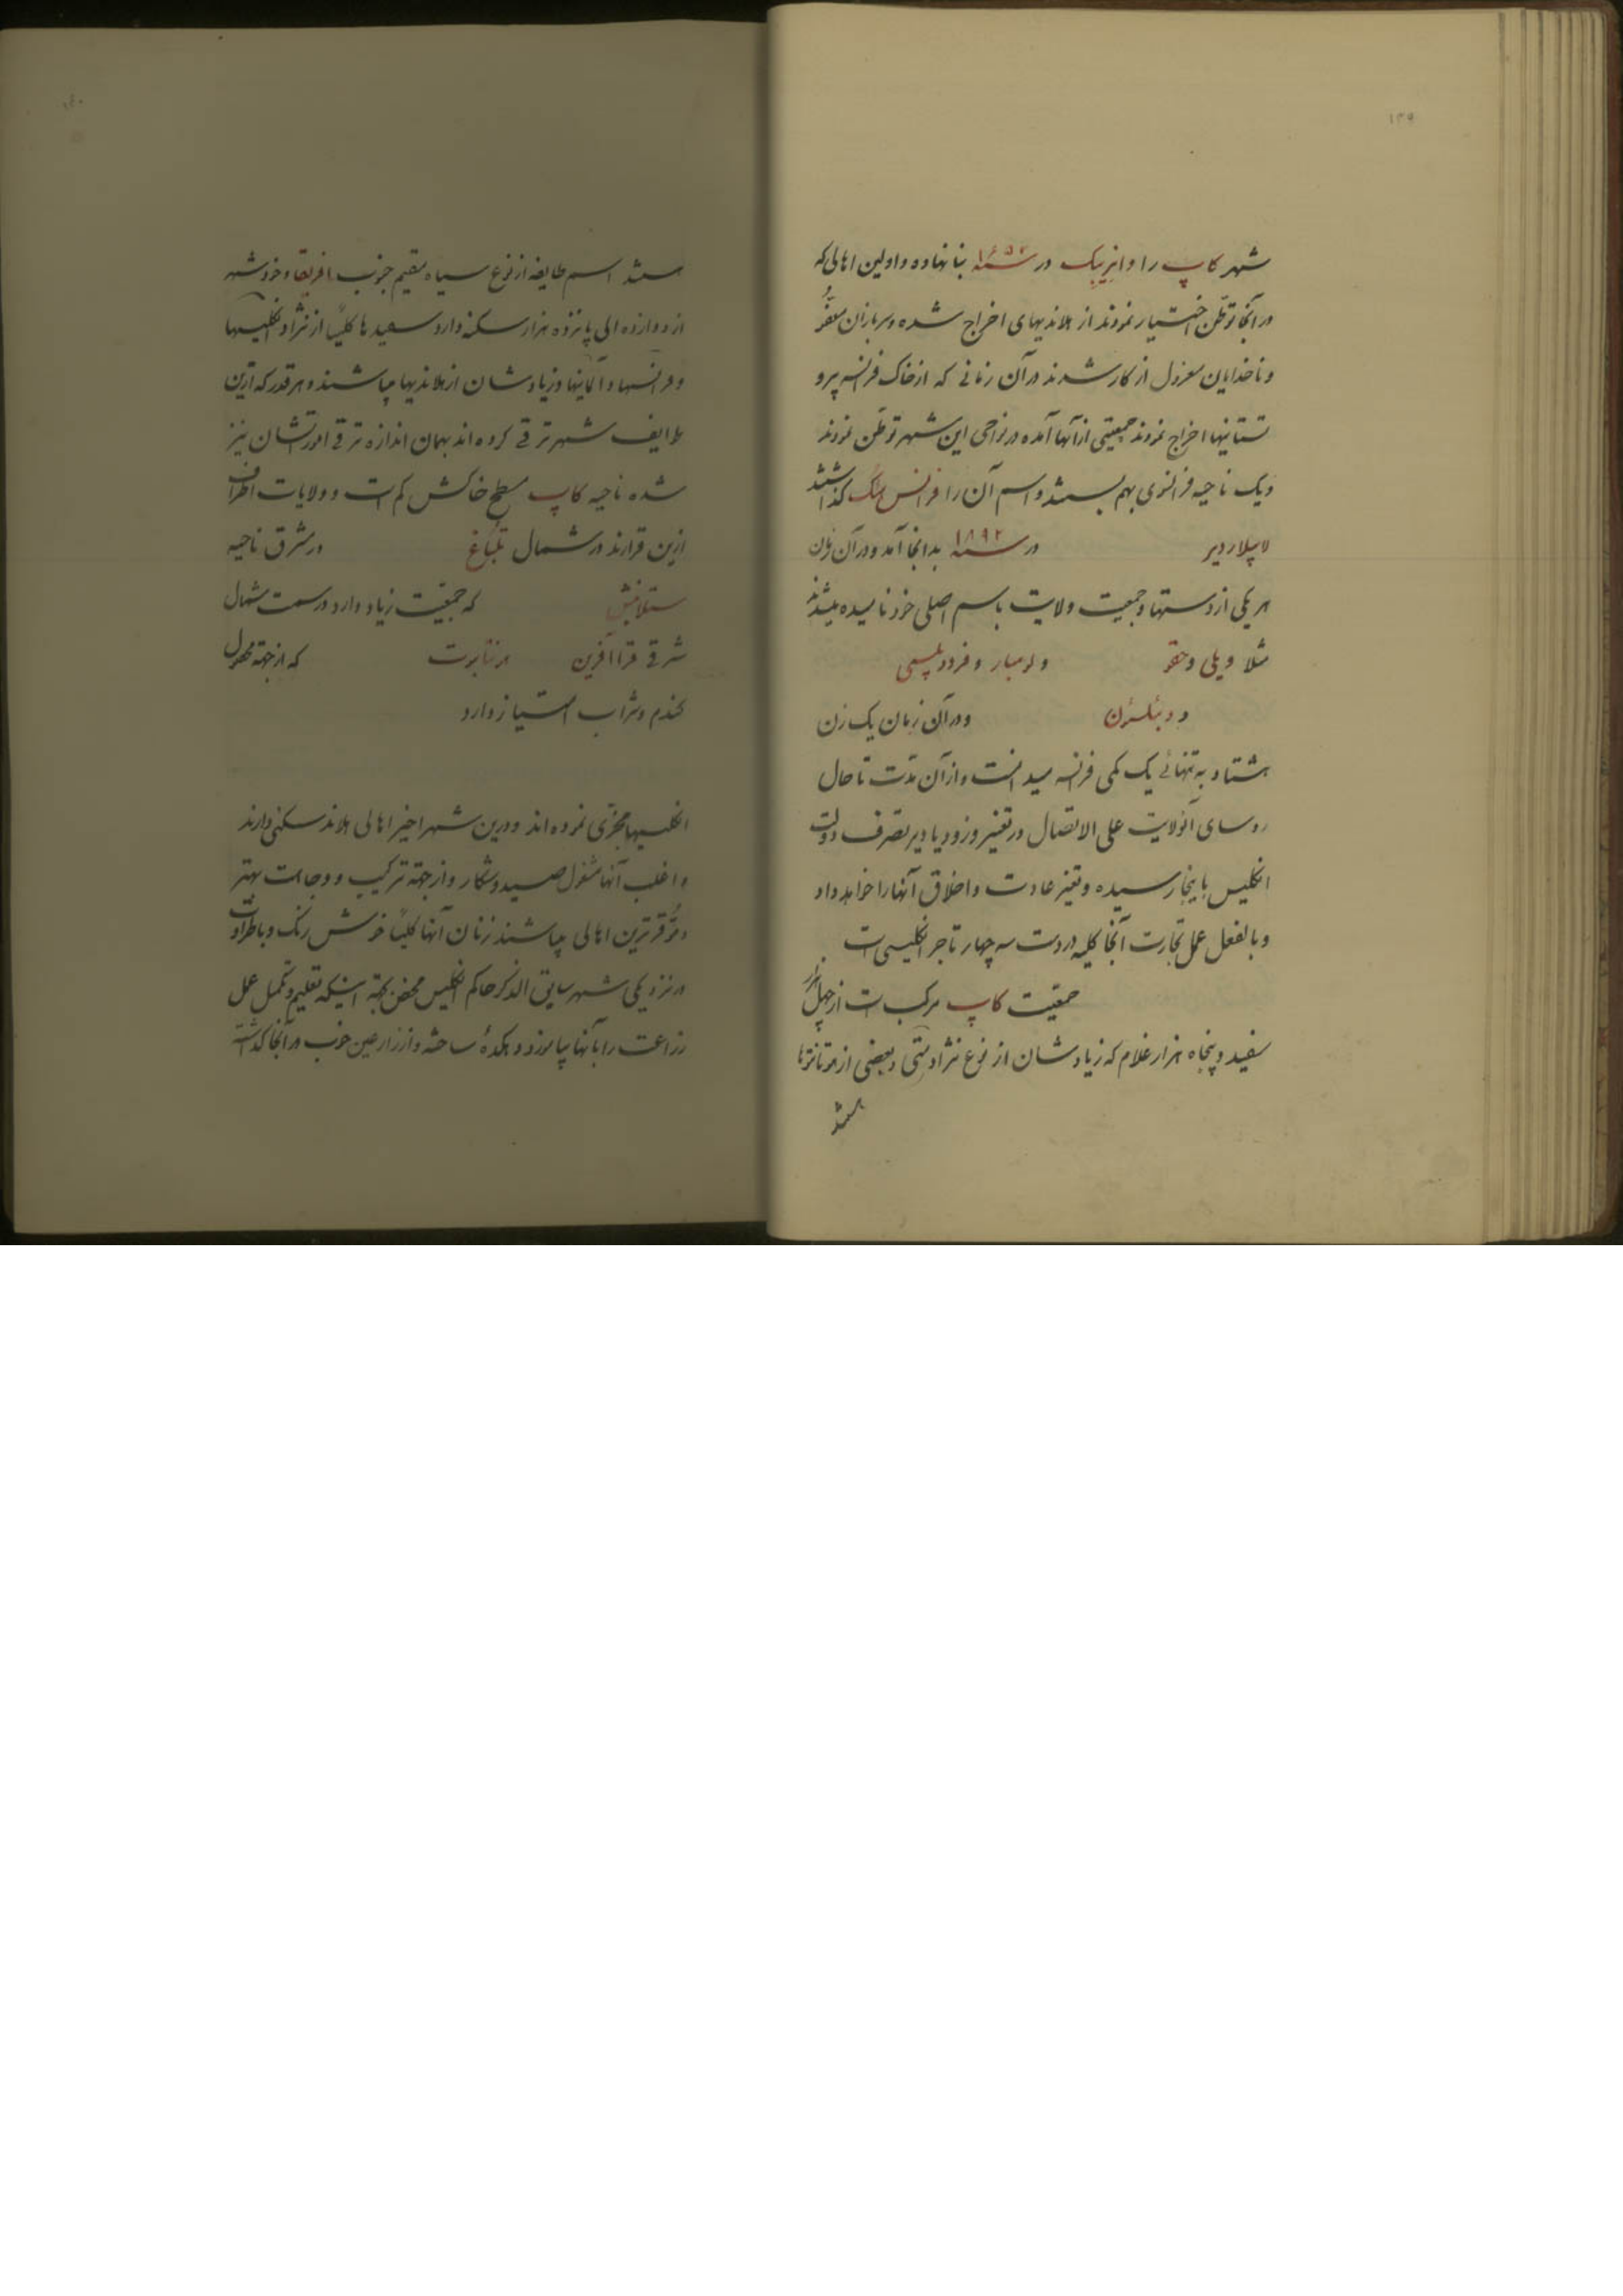 ۱۳۹
شهر کاپ را وانریبک در سنه ۱۶۵۲ بنا نهاده و اولین اهالی که
در آنجا توطّن اختیار نمودند از هلاندیهای اخراج شده و سربازان معفوّ
و ناخدایان معزول از کار شدند در آن زمانی که از خاک فرانسه پرو
تستانیها اخراج نمودند جمعیتی از آنها آمده در نواحی این شهر توطّن نمودند
و یک ناحیه فرانسوی بهم بستند و اسم آن را فرانس هنگ گذاشتند
لاپیلاردیر در سنه ۱۸۹۲ بدانجا آمد و در آن زمان
هر یکی از دستها و جمعیت ولایت باسم اصلی خود نامیده میشدند
مثلا ویلی و حقو و لومبار و فرود پلیسی
و دبئلسژن و در آن زمان یک زن
هشتاد به تنهائی یک کمی فرانسه میدانست و از آن مدّت تا حال
روسای آنولایت علی الاتصال در تغییر و زود یا دیر تصرف دولت
انکلیس باینجا رسیده و تغییر عادت و اخلاق آنها را خواهد داد
و بالفعل عمل تجارت آنجا کلیه در دست سه چهار تاجر انکلیسی است
جمعیت کاپ مرکب است از چهل هزار
سفید و پنجاه هزار غلام که زیادشان از نوع نژاد متی و بعضی از هوتانتوتها
هستند
۱۴۰
هستند اسم طایفه از نوع سیاه مقیم جنوب افریقا و خود شهر
از دوازده الی پانزده هزار سکنه دارد سعیدها کلیّا از نژاد انکلیسها
و فرانسها و آلمانیها و زیادشان از هلاندیها میباشند و هر قدر که ازین
طوایف شهر ترقی کرده اند بهمان اندازه ترقی امورتشان نیز
شده ناحیه کاپ سطح خاکش کم است و ولایات اطراف
ازین قرارند در شمال تلباغ در شرق ناحیه
ستلانبش که جمعیت زیاد دارد در سمت شمال
شرقی قرا آفرین هرنتابرت که از جهة محصول
گندم و شراب امتیاز دارد
انکلیسیها مجزّی نموده اند و درین شهر اخیر اهالی هلاند سکنی دارند
و اغلب آنها مشغول صید و شکار و از جهة ترکیب و وجاهت بهتر
و موّقرترین اهالی میباشند زنان آنها کلیّا خوش رنگ و با طراوت
در نزدیکی شهر سابق الذکر حاکم انکلیس محض بجهة اینکه تعلیم و تکمیل عمل
زراعت را بآنها بیاموزد دهکدهٔ ساخته و از زارعین خوب در آنجا گذاشته